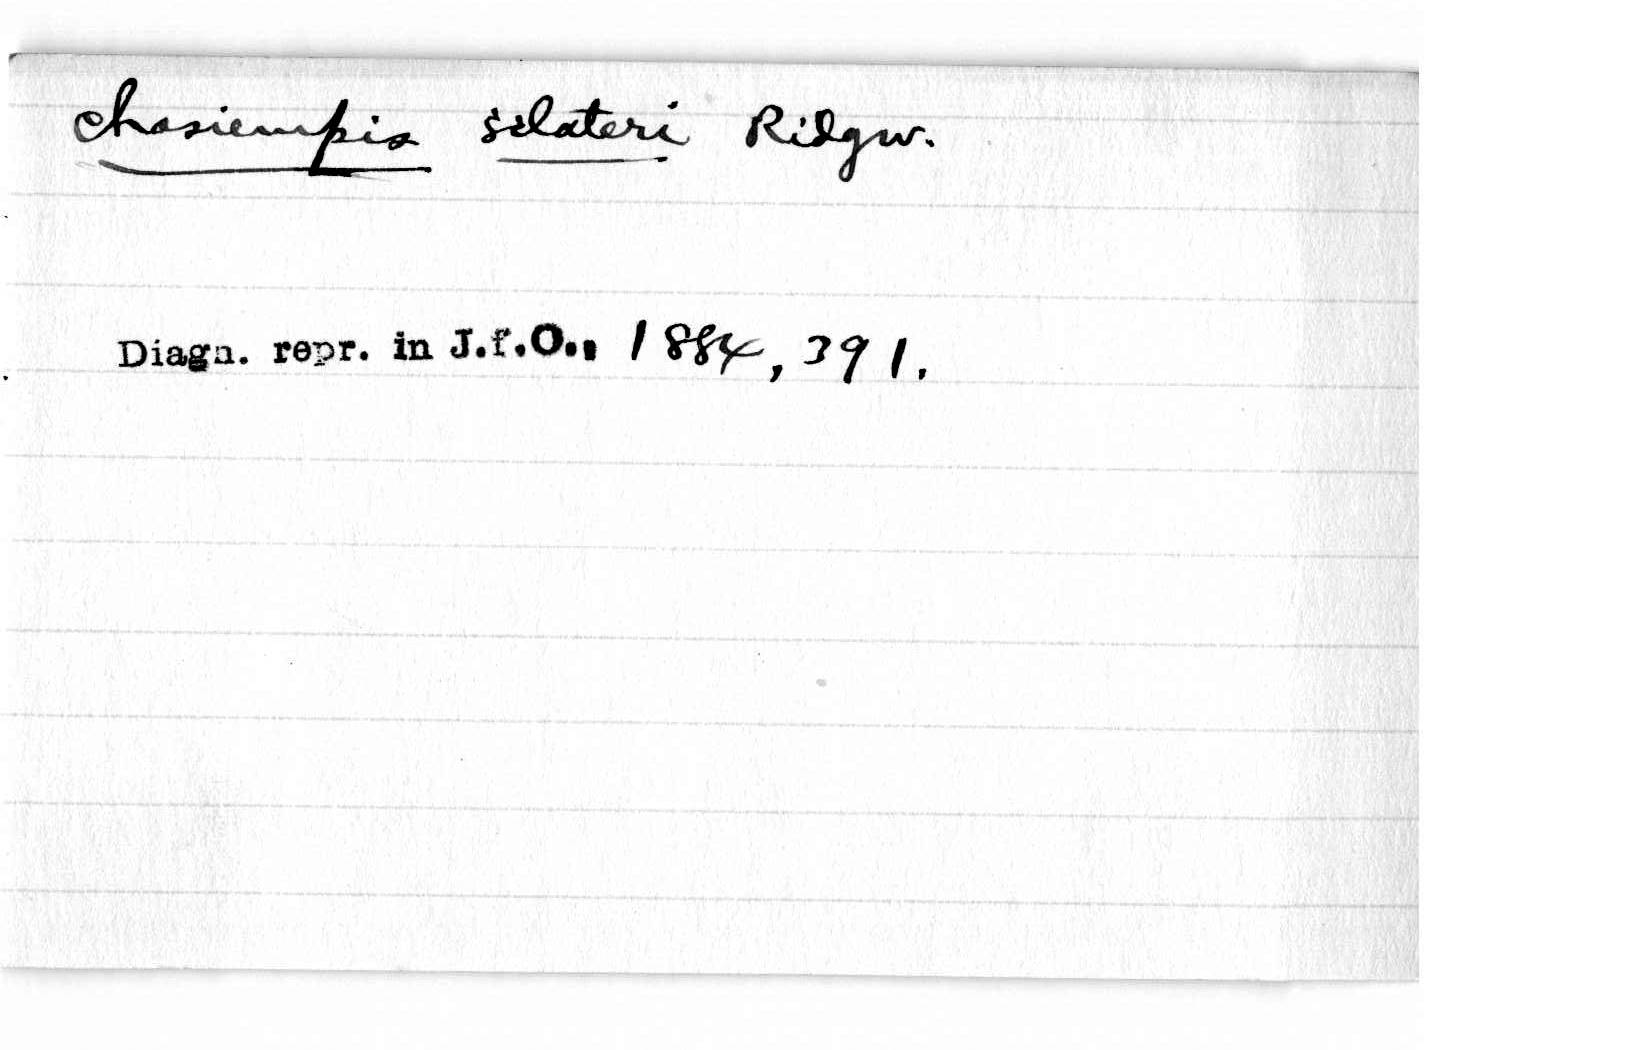 Chasiempis sclateri Ridgw.
Diagn. repr. in J.f.O., 1884, 391.